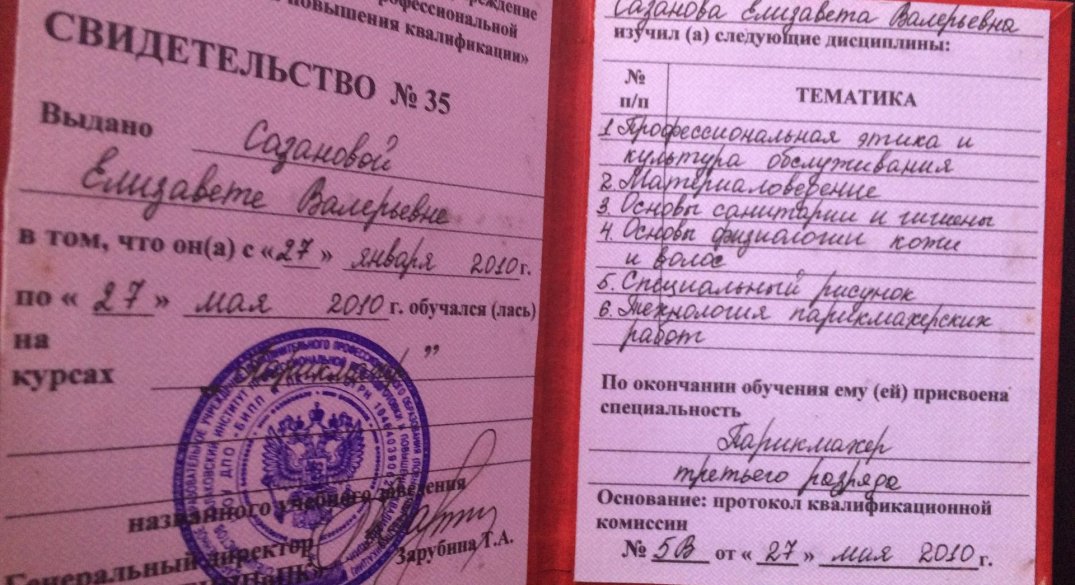 учреждение
профессиональной
повышения квалификации»
СВИДЕТЕЛЬСТВО № 35
Выдано Сазановой
Елизавете Валерьевне
в том, что он(а) с «27» января 2010г.
по «27» мая 2010г. обучался (лась)
на
курсах „Парикмахер”
названного учебного заведения
Генеральный директор
Зарубина Т.А.
Сазанова Елизавета Валерьевна
изучил (а) следующие дисциплины:
№ п/п ТЕМАТИКА
1. Профессиональная этика и
культура обслуживания
2. Материаловедение
3. Основы санитарии и гигиены
4. Основы физиологии кожи
и волос
5. Специальный рисунок
6. Технология парикмахерских
работ
По окончании обучения ему (ей) присвоена
специальность
Парикмахер
третьего разряда
Основание: протокол квалификационной
комиссии
№ 5В от «27» мая 2010г.